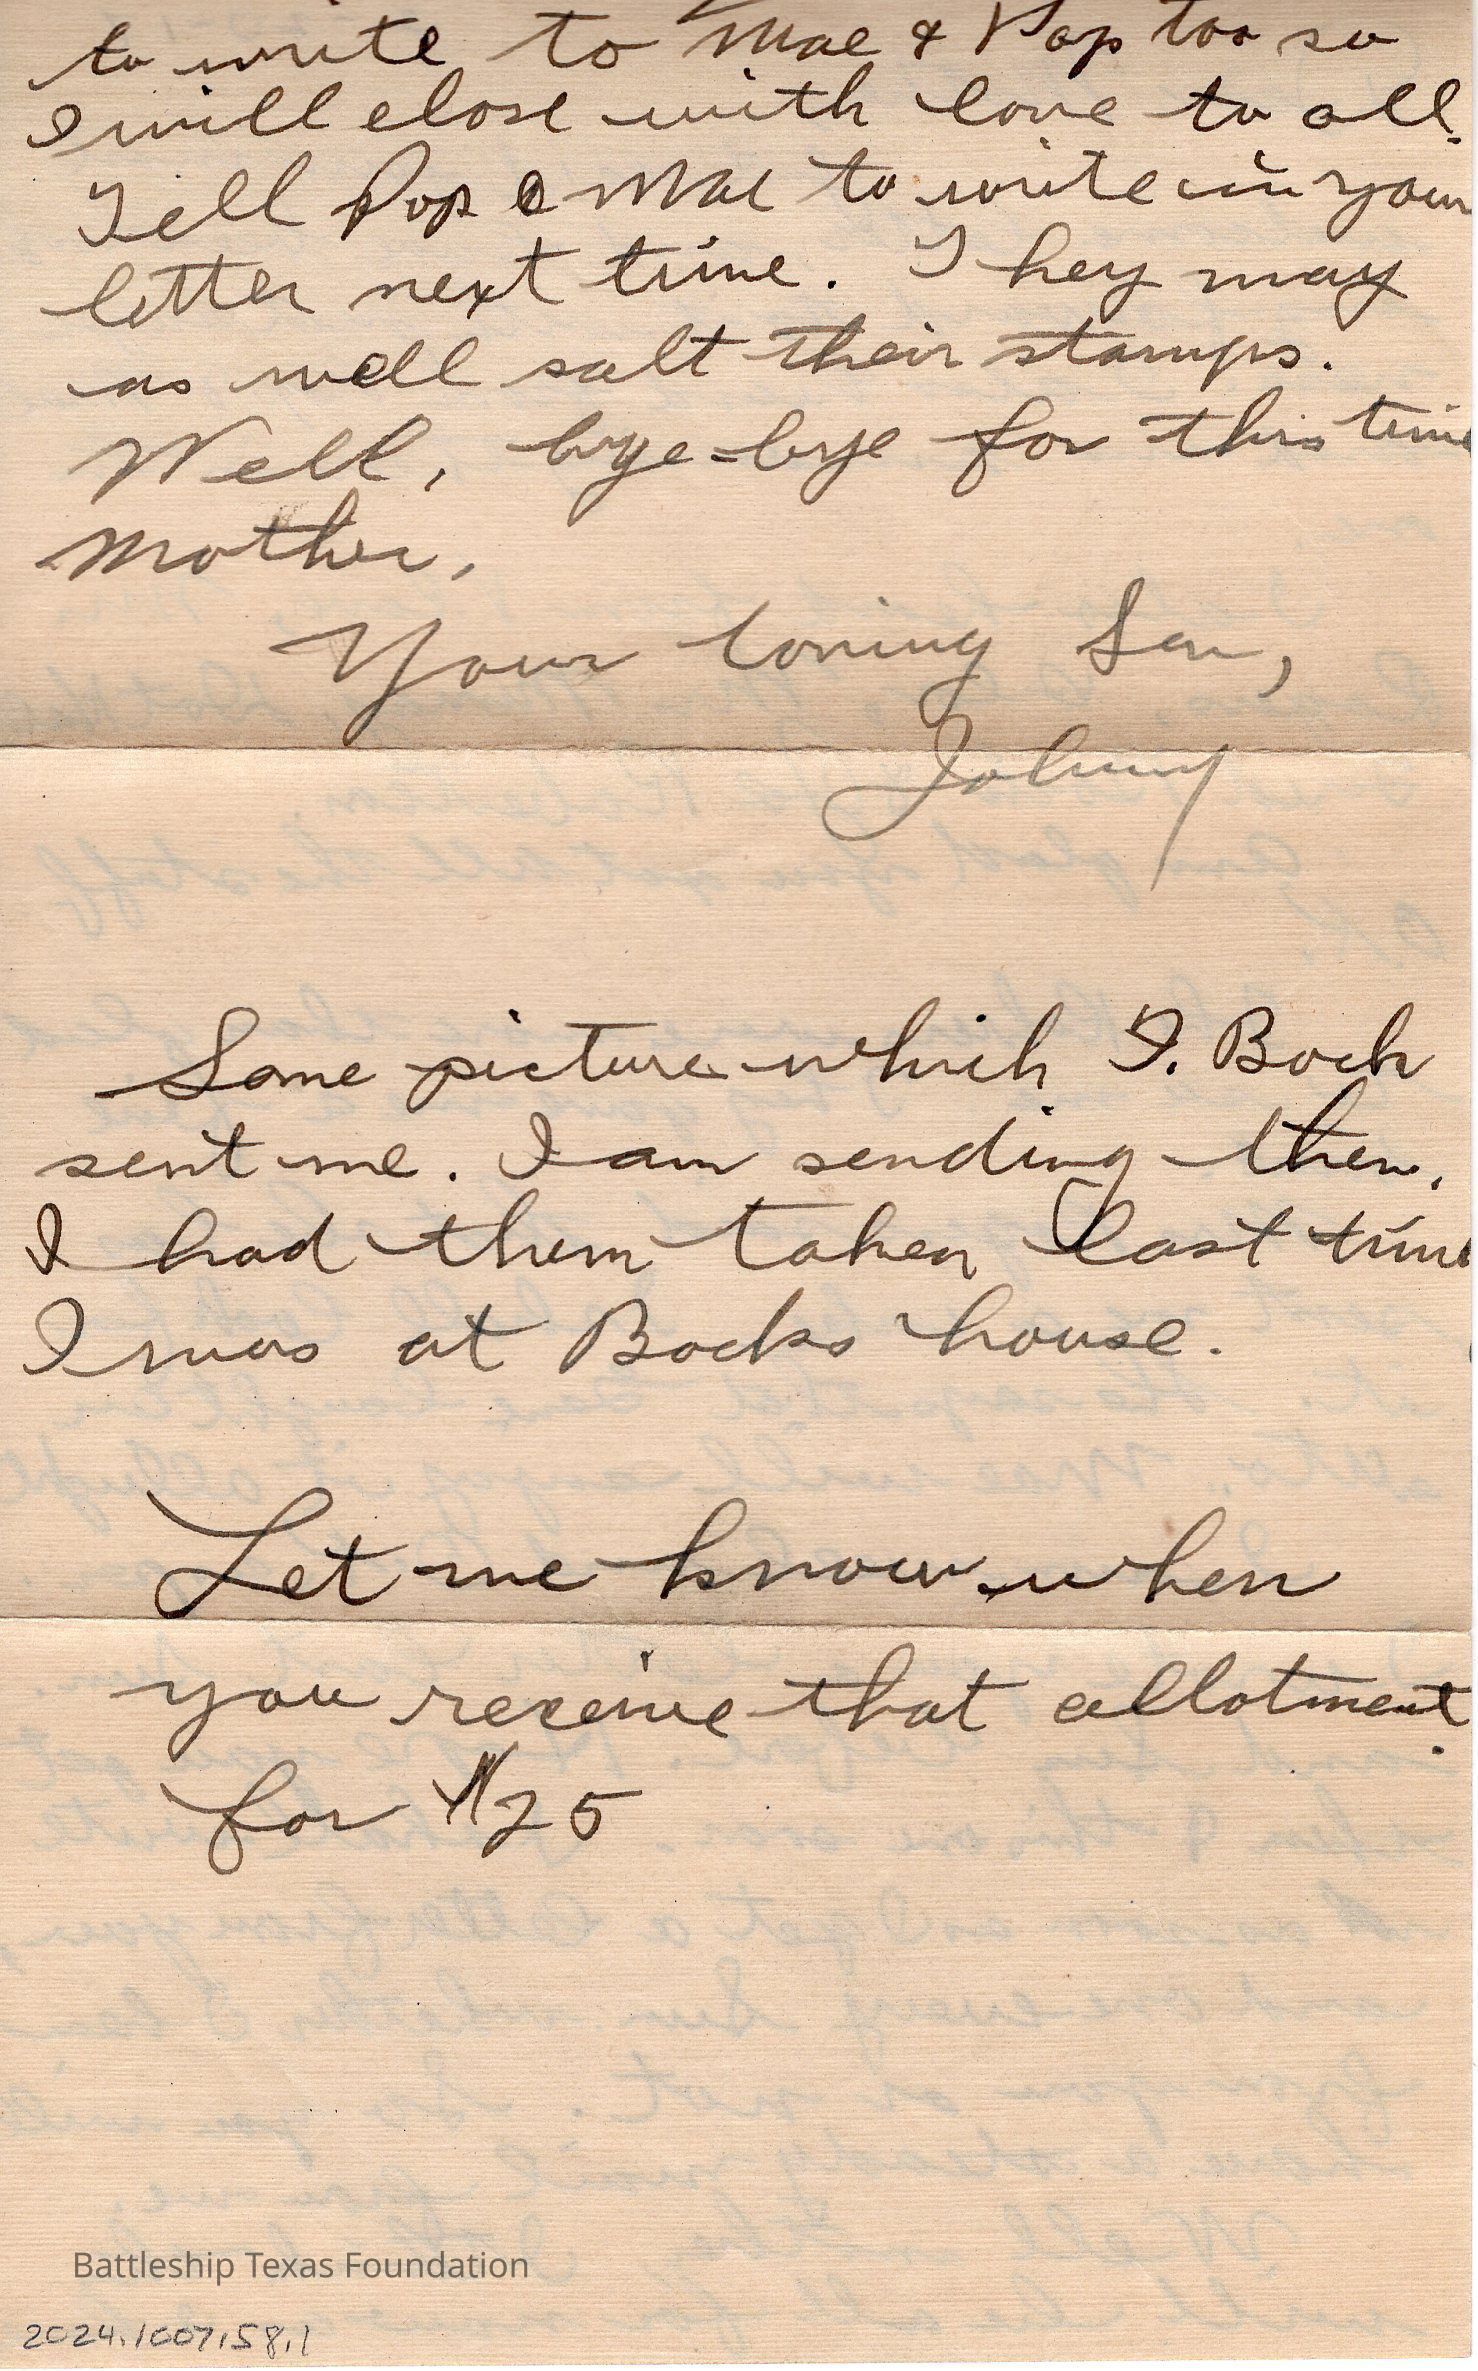 to write to Mae & Pop too so
I will close with love to all.
Tell Pop & Mae to write in your
letter next time. They may
as well salt their stamps.
Well, bye-bye for this time
Mother,
Your loving Son,
Johnny
Some picture which I. Bock
sent me. I am sending them.
I had them taken last time
I was at Bocks house.
Let me know when
you receive that allotment
for $25
Battleship Texas Foundation
2024.1007.58.1